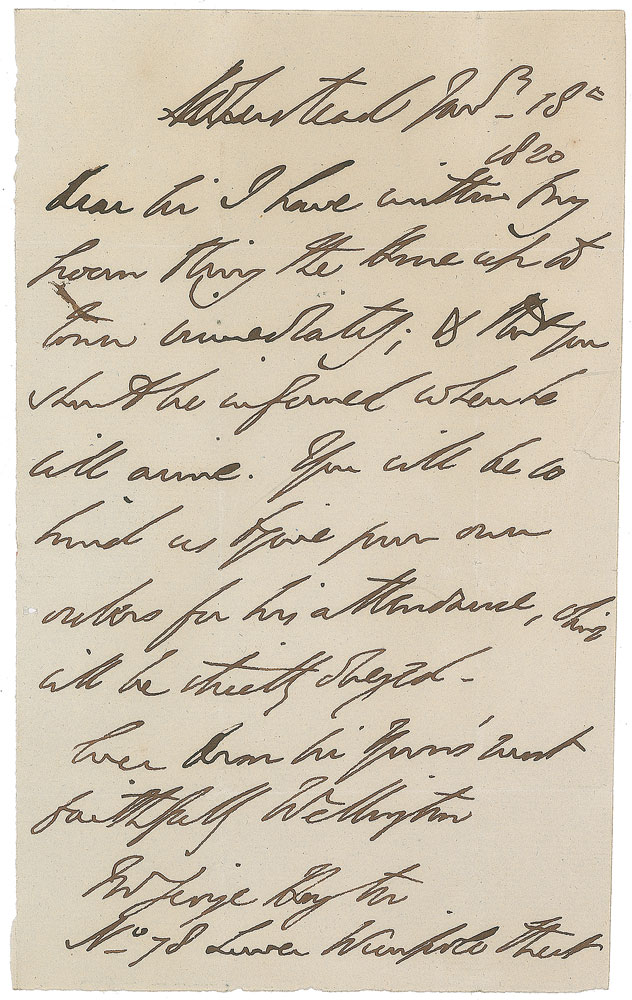 Janry 18th
1820
Dear Sir I have written by
the
town immediately; & that you
should be informed when he
will arrive. You will be so
kind as to give your own
orders for his attendance, which
will be strictly obeyed -
Ever Dear Sir Yours' most
faithfully Wellington
George
No 78 Lower Street